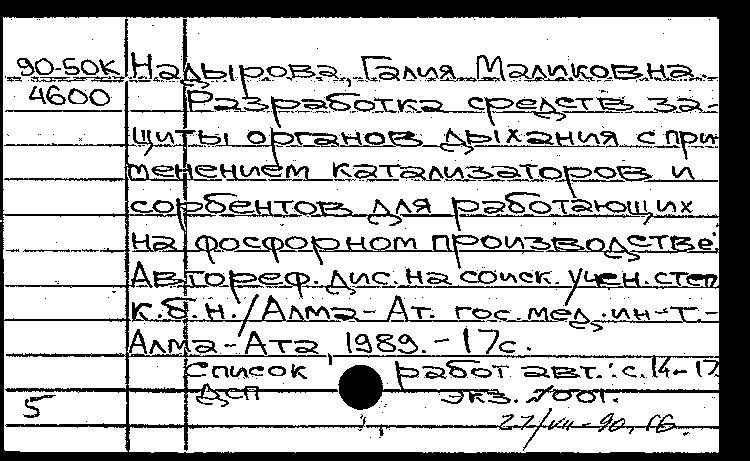 90-50К Надырова, Галия Маликовна.
4600 Разработка средств за-
щиты органов дыхания с при-
менением катализаторов и
сорбентов для работающих
на фосфорном производстве:
Автореф. дис. на соиск. учен. степ
к.б.н./Алма-Ат. гос. мед. ин-т.-
Алма-Ата, 1989.-17с.
Список работ авт.: с.14-17
ДСП экз. №001.
5
27/VII-90,